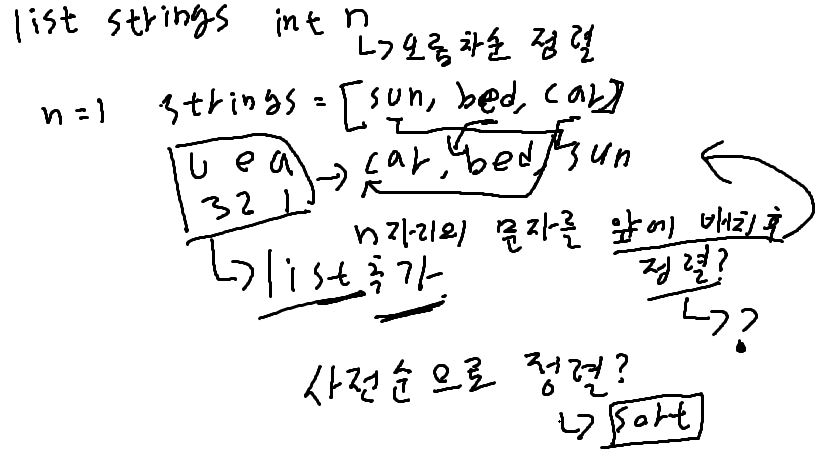 list strings int n
↳오름차순 정렬
n=1 strings = [sun, bed, car]
u e a → car, bed, sun
3 2 1
n자리의 문자를 앞에 배치후
↳list추가 정렬?
↳?
사전순으로 정렬?
↳sort